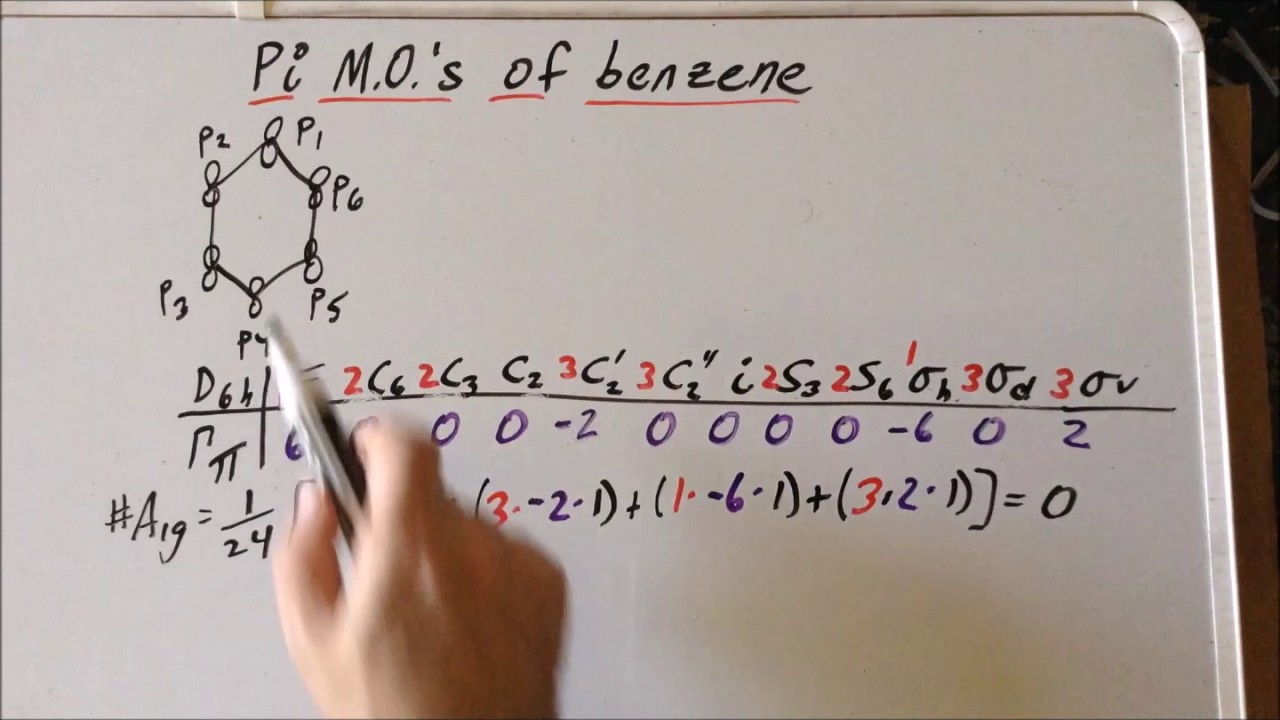 Pi M.O.'s of benzene
P2 P1
P6
P3 P5
P4
D6h 2C6 2C3 C2 3C2' 3C2" i 2S3 2S6 1σh 3σd 3σv
Γπ 6 0 0 -2 0 0 0 0 -6 0 2
#A1g = 1/24 [ (3·-2·1)+(1·-6·1)+(3·2·1)]=0